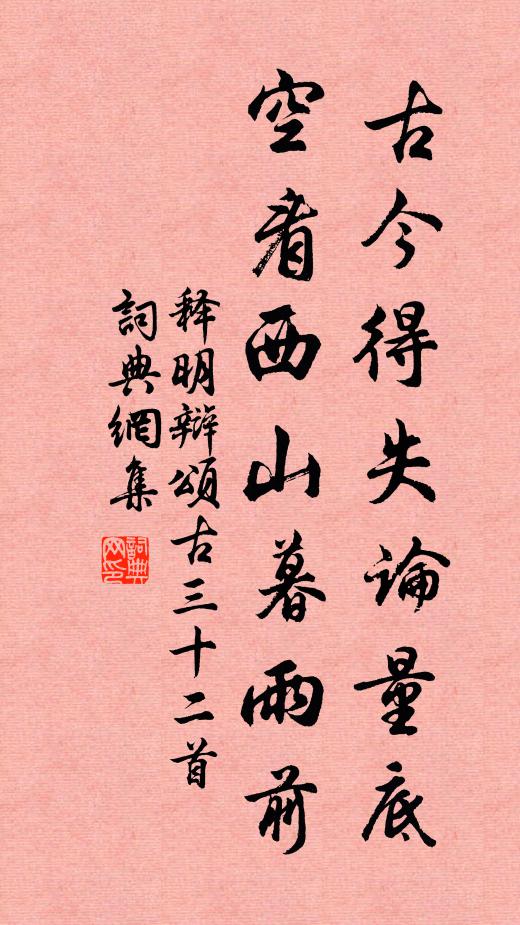 古今得失論量底
空看西山暮雨前
释明辯頌古三十二首
詞典網集
詞典网印